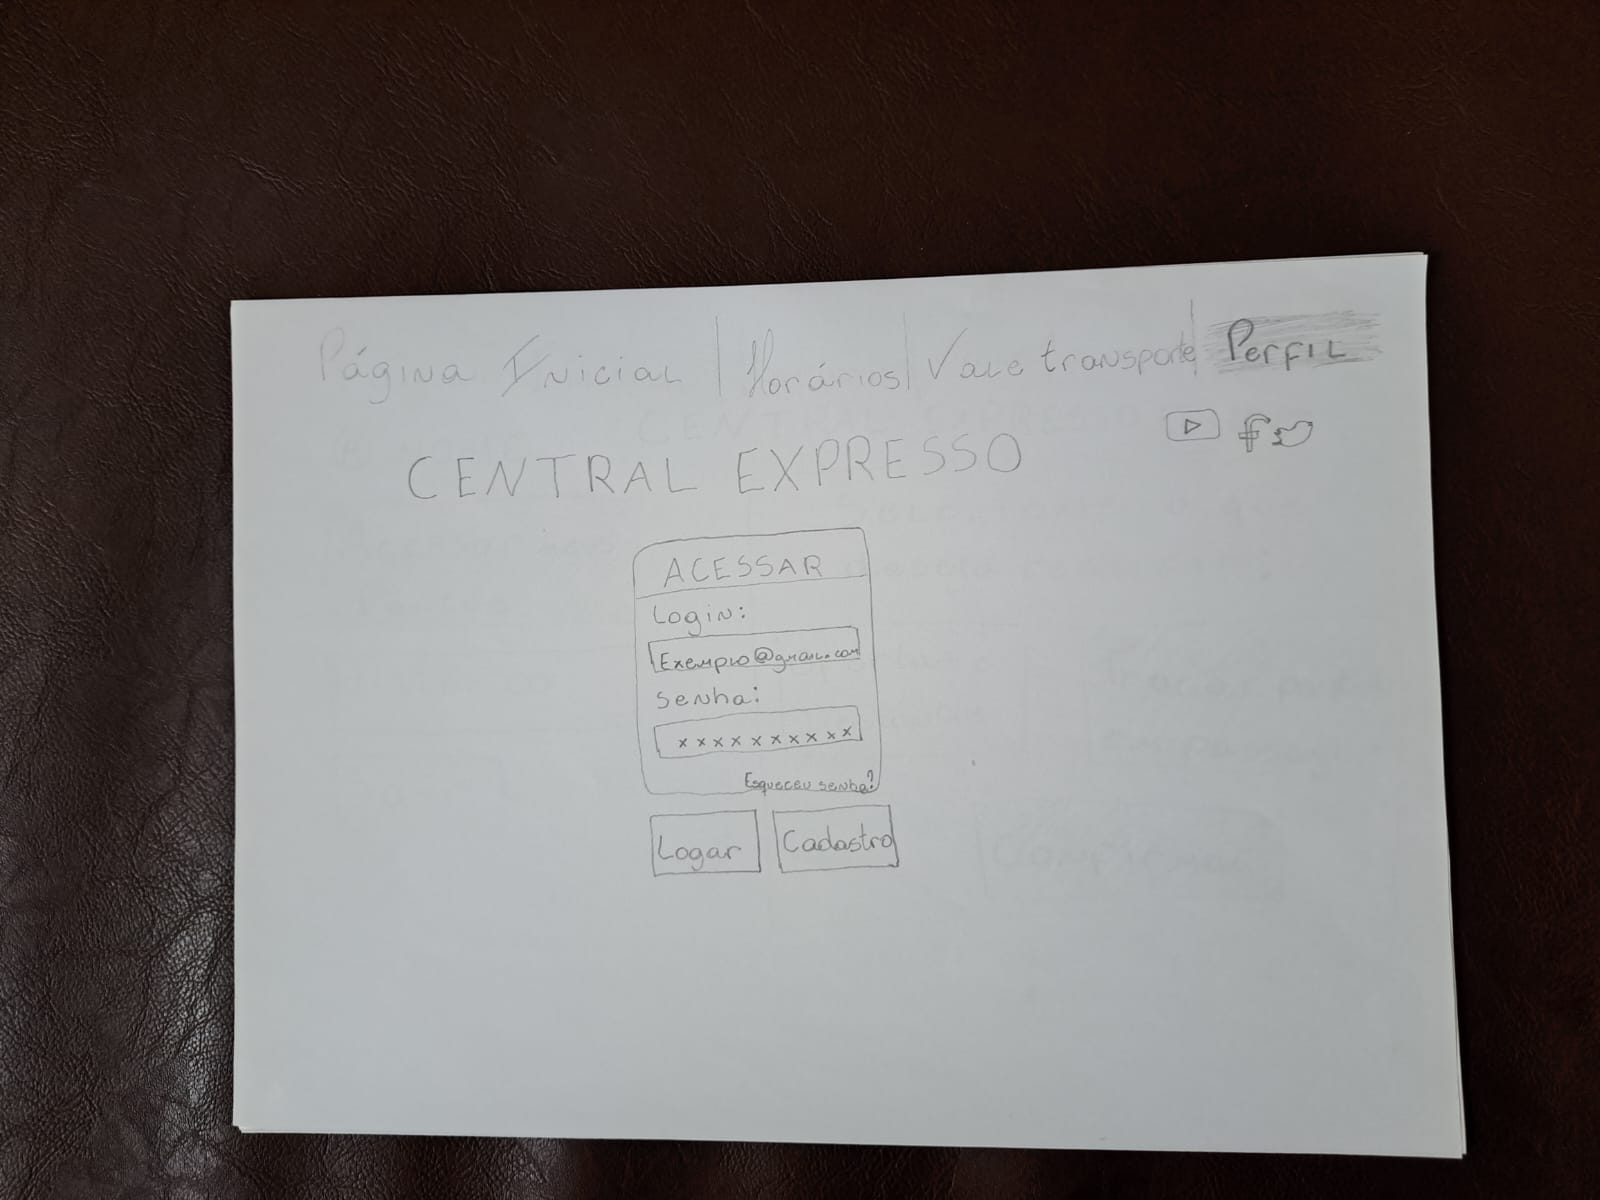 Página Inicial | Horários | Vale transporte | Perfil
CENTRAL EXPRESSO
ACESSAR
Login:
Exemplo@gmail.com
senha:
xxxxxxxxxx
Esqueceu senha?
Logar Cadastro
Confirmar